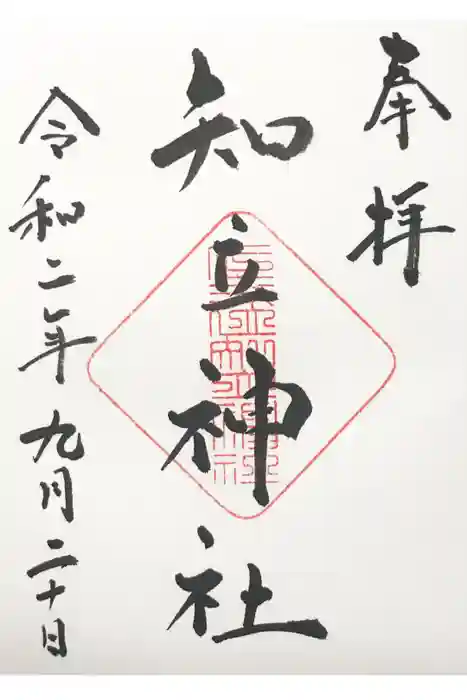 奉拝
知立神社
令和二年九月二十日